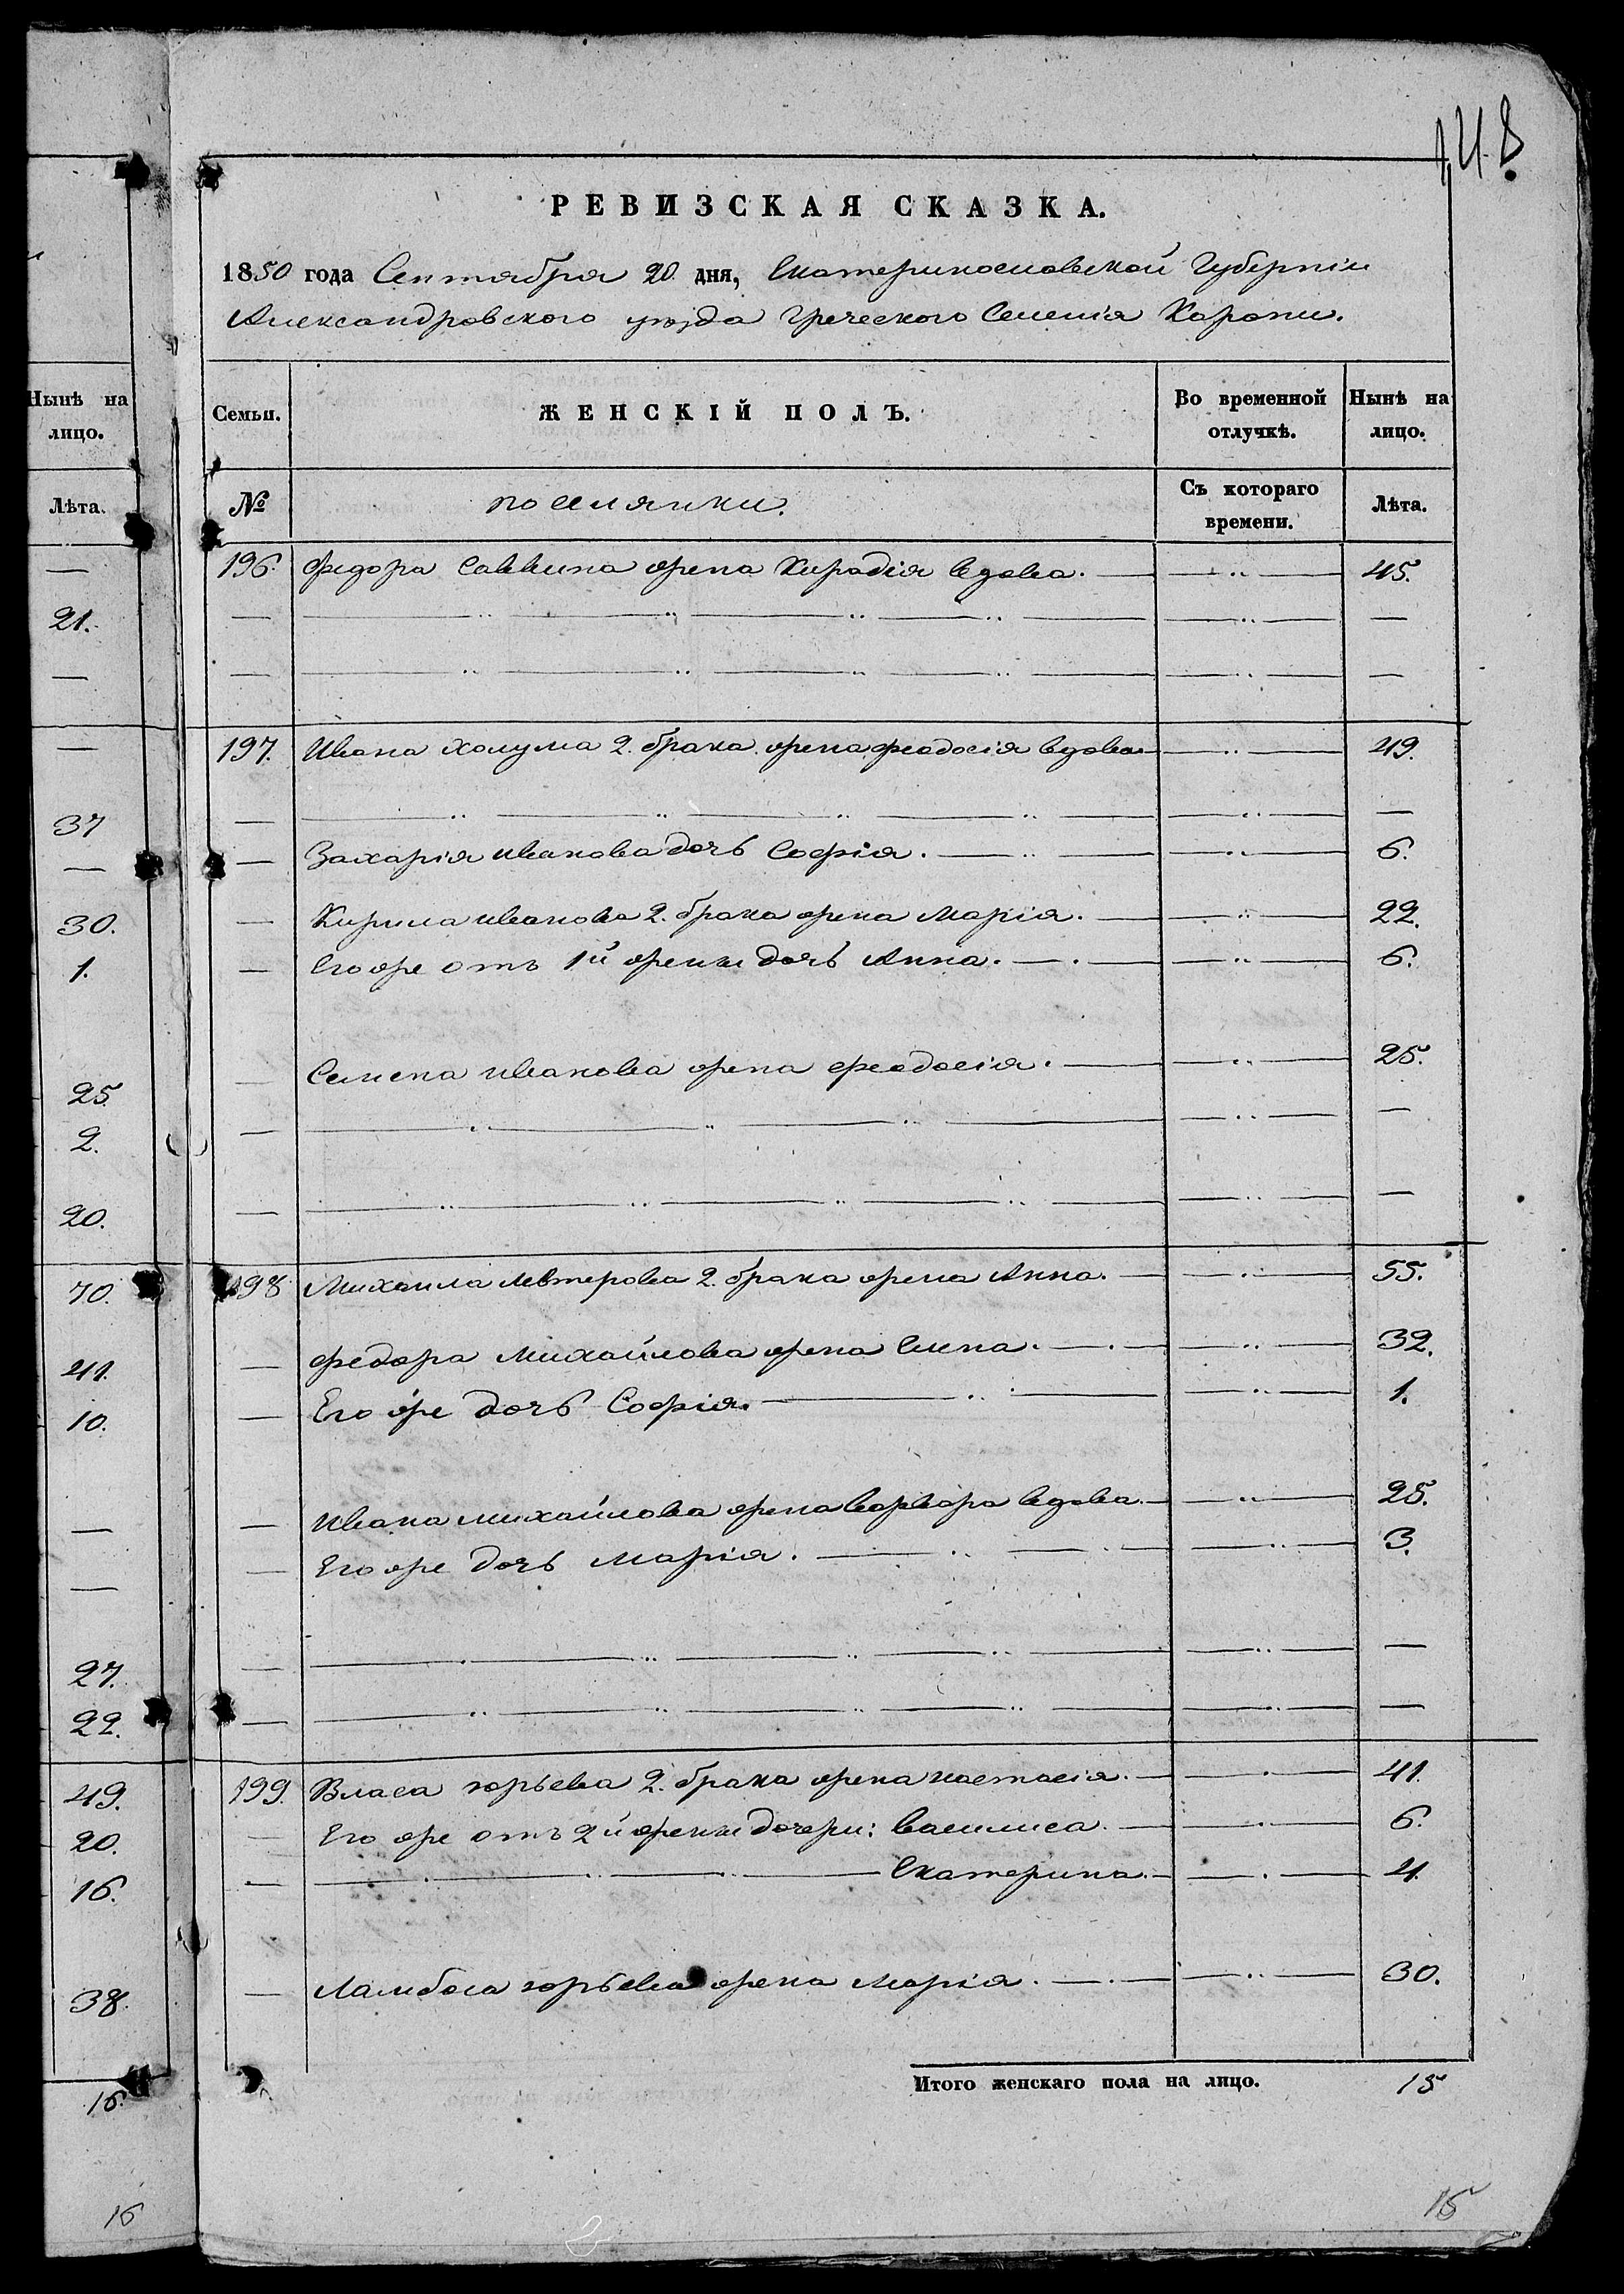 148
РЕВИЗСКАЯ СКАЗКА.
1850 года Сентября 20 дня, Екатеринославской Губерніи
Александровского уѣзда Греческого Селенія Карани.
Нынѣ на
лицо.
Лѣта.
—
21.
—
—
37
—
30.
1.
25
2.
20.
70.
41.
10.
—
—
27.
22.
49.
20.
16.
38.
16.
16
Семьи. ЖЕНСКІЙ ПОЛЪ. Во временной отлучкѣ. Нынѣ на лицо.
№ поселянки. Съ котораго времени. Лѣта.
196 Федора Саввина жена Кирадія вдова. — 45.
197. Ивана Холума 2. брака жена феодосія вдова — 49.
— Захарія иванова дочь Софія. — 6.
— Кирила иванова 2. брака жена Марія. — 22.
— Его же отъ 1й жены дочь Анна. — 6.
— Семена иванова жена феодосія. — 25.
198 Михаила Левтерова 2. брака жена Анна. — 55.
— федора Михайлова жена Елена. — 32.
— Его же дочь Софія. — 1.
— Ивана михайлова жена варвара вдова. — 25.
— Его же дочь Марія. — 3.
199. Власа юрьева 2. брака жена настасія. — 41.
— Его же отъ 2й жены дочери: василиса. — 6.
— Екатерина. — 4.
— Ламбоса юрьева жена Марія. — 30.
Итого женскаго пола на лицо. 15
15